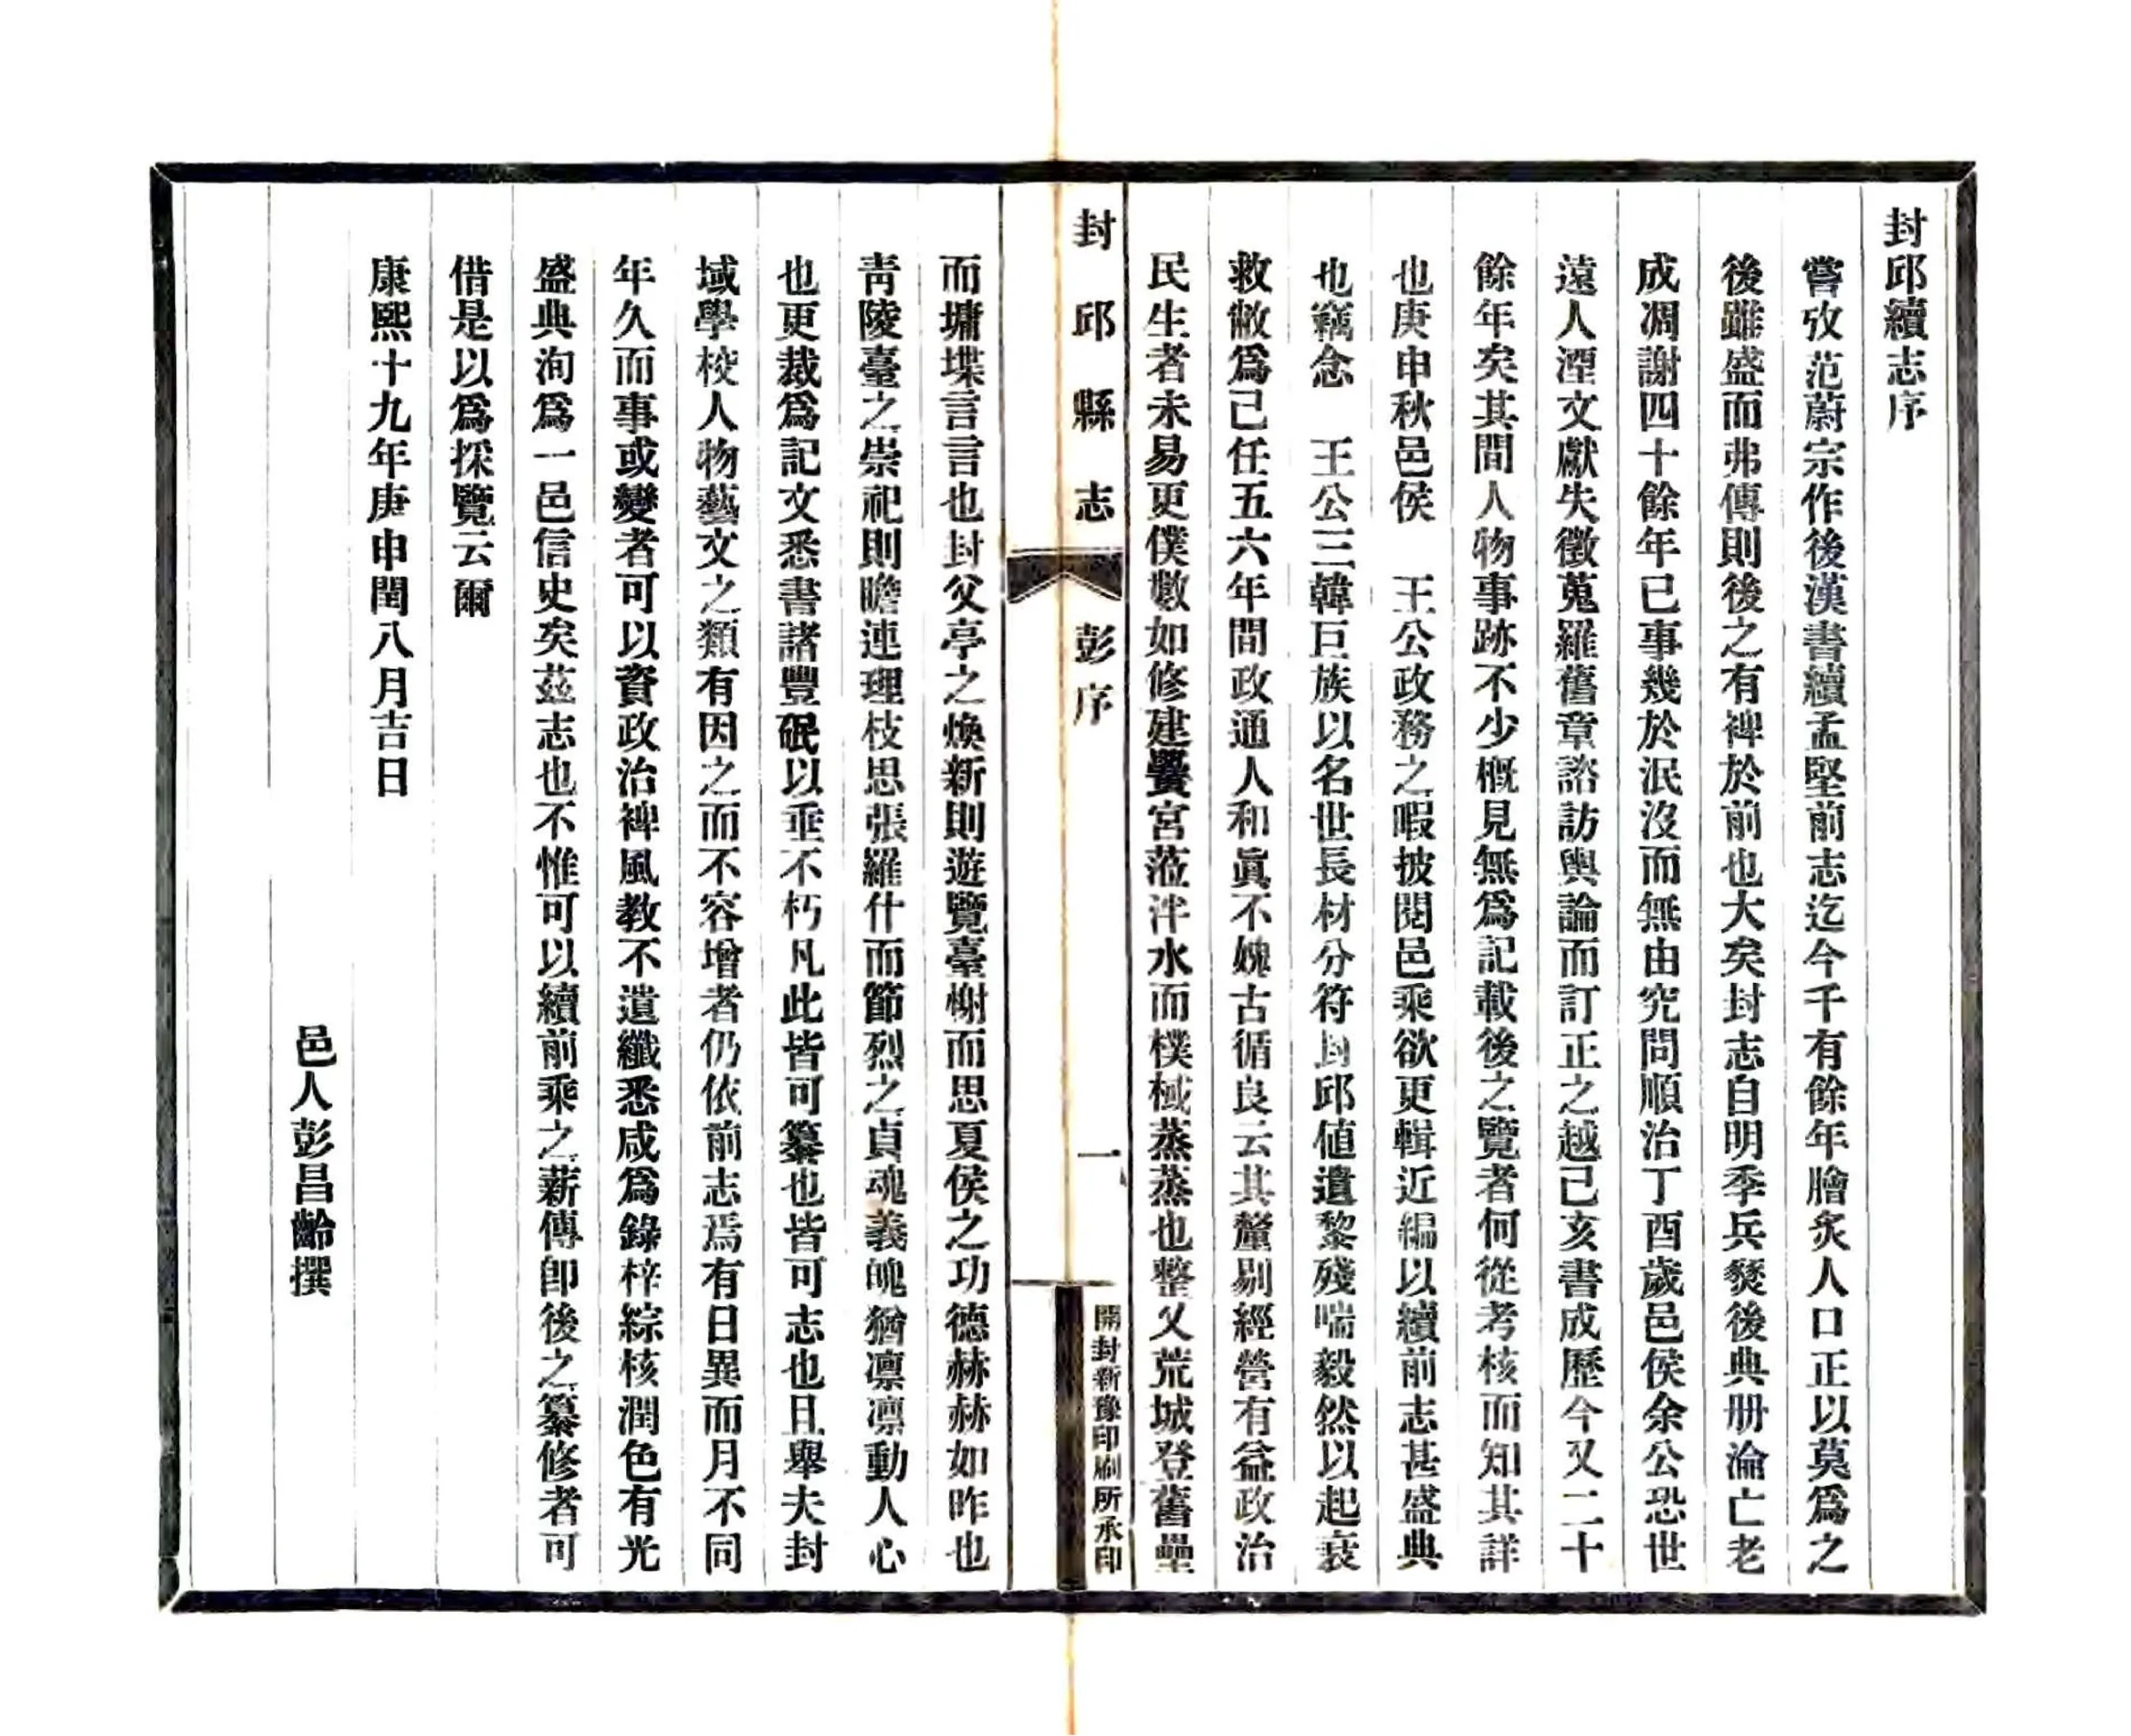 封邱續志序
嘗攷范蔚宗作後漢書續孟堅前志迄今千有餘年膾炙人口正以莫爲之
後雖盛而弗傳則後之有裨於前也大矣封志自明季兵燹後典册淪亡老
成凋謝四十餘年已事幾於泯沒而無由究問順治丁酉歲邑侯余公恐世
遠人湮文獻失徵蒐羅舊章諮訪輿論而訂正之越己亥書成歷今又二十
餘年矣其間人物事跡不少槪見無爲記載後之覽者何從考核而知其詳
也庚申秋邑侯　王公政務之暇披閱邑乘欲更輯近編以續前志甚盛典
也竊念　王公三韓巨族以名世長材分符封邱値遺黎殘喘毅然以起衰
救敝爲己任五六年間政通人和眞不媿古循良云其釐剔經營有益政治
民生者未易更僕數如修建黌宮蒞泮水而樸棫蒸蒸也整乂荒城登舊壘
封邱縣志
彭序
一
開封新豫印刷所承印
而墉堞言言也封父亭之煥新則遊覽臺榭而思夏侯之功德赫赫如昨也
靑陵臺之崇祀則瞻連理枝思張羅什而節烈之貞魂義魄猶凛凛動人心
也更裁爲記文悉書諸豐碈以垂不朽凡此皆可纂也皆可志也且舉夫封
域學校人物藝文之類有因之而不容增者仍依前志焉有日異而月不同
年久而事或變者可以資政治裨風教不遺纖悉咸爲錄梓綜核潤色有光
盛典洵爲一邑信史矣茲志也不惟可以續前乘之薪傳卽後之纂修者可
借是以爲採覽云爾
康熙十九年庚申閏八月吉日
邑人彭昌齡撰